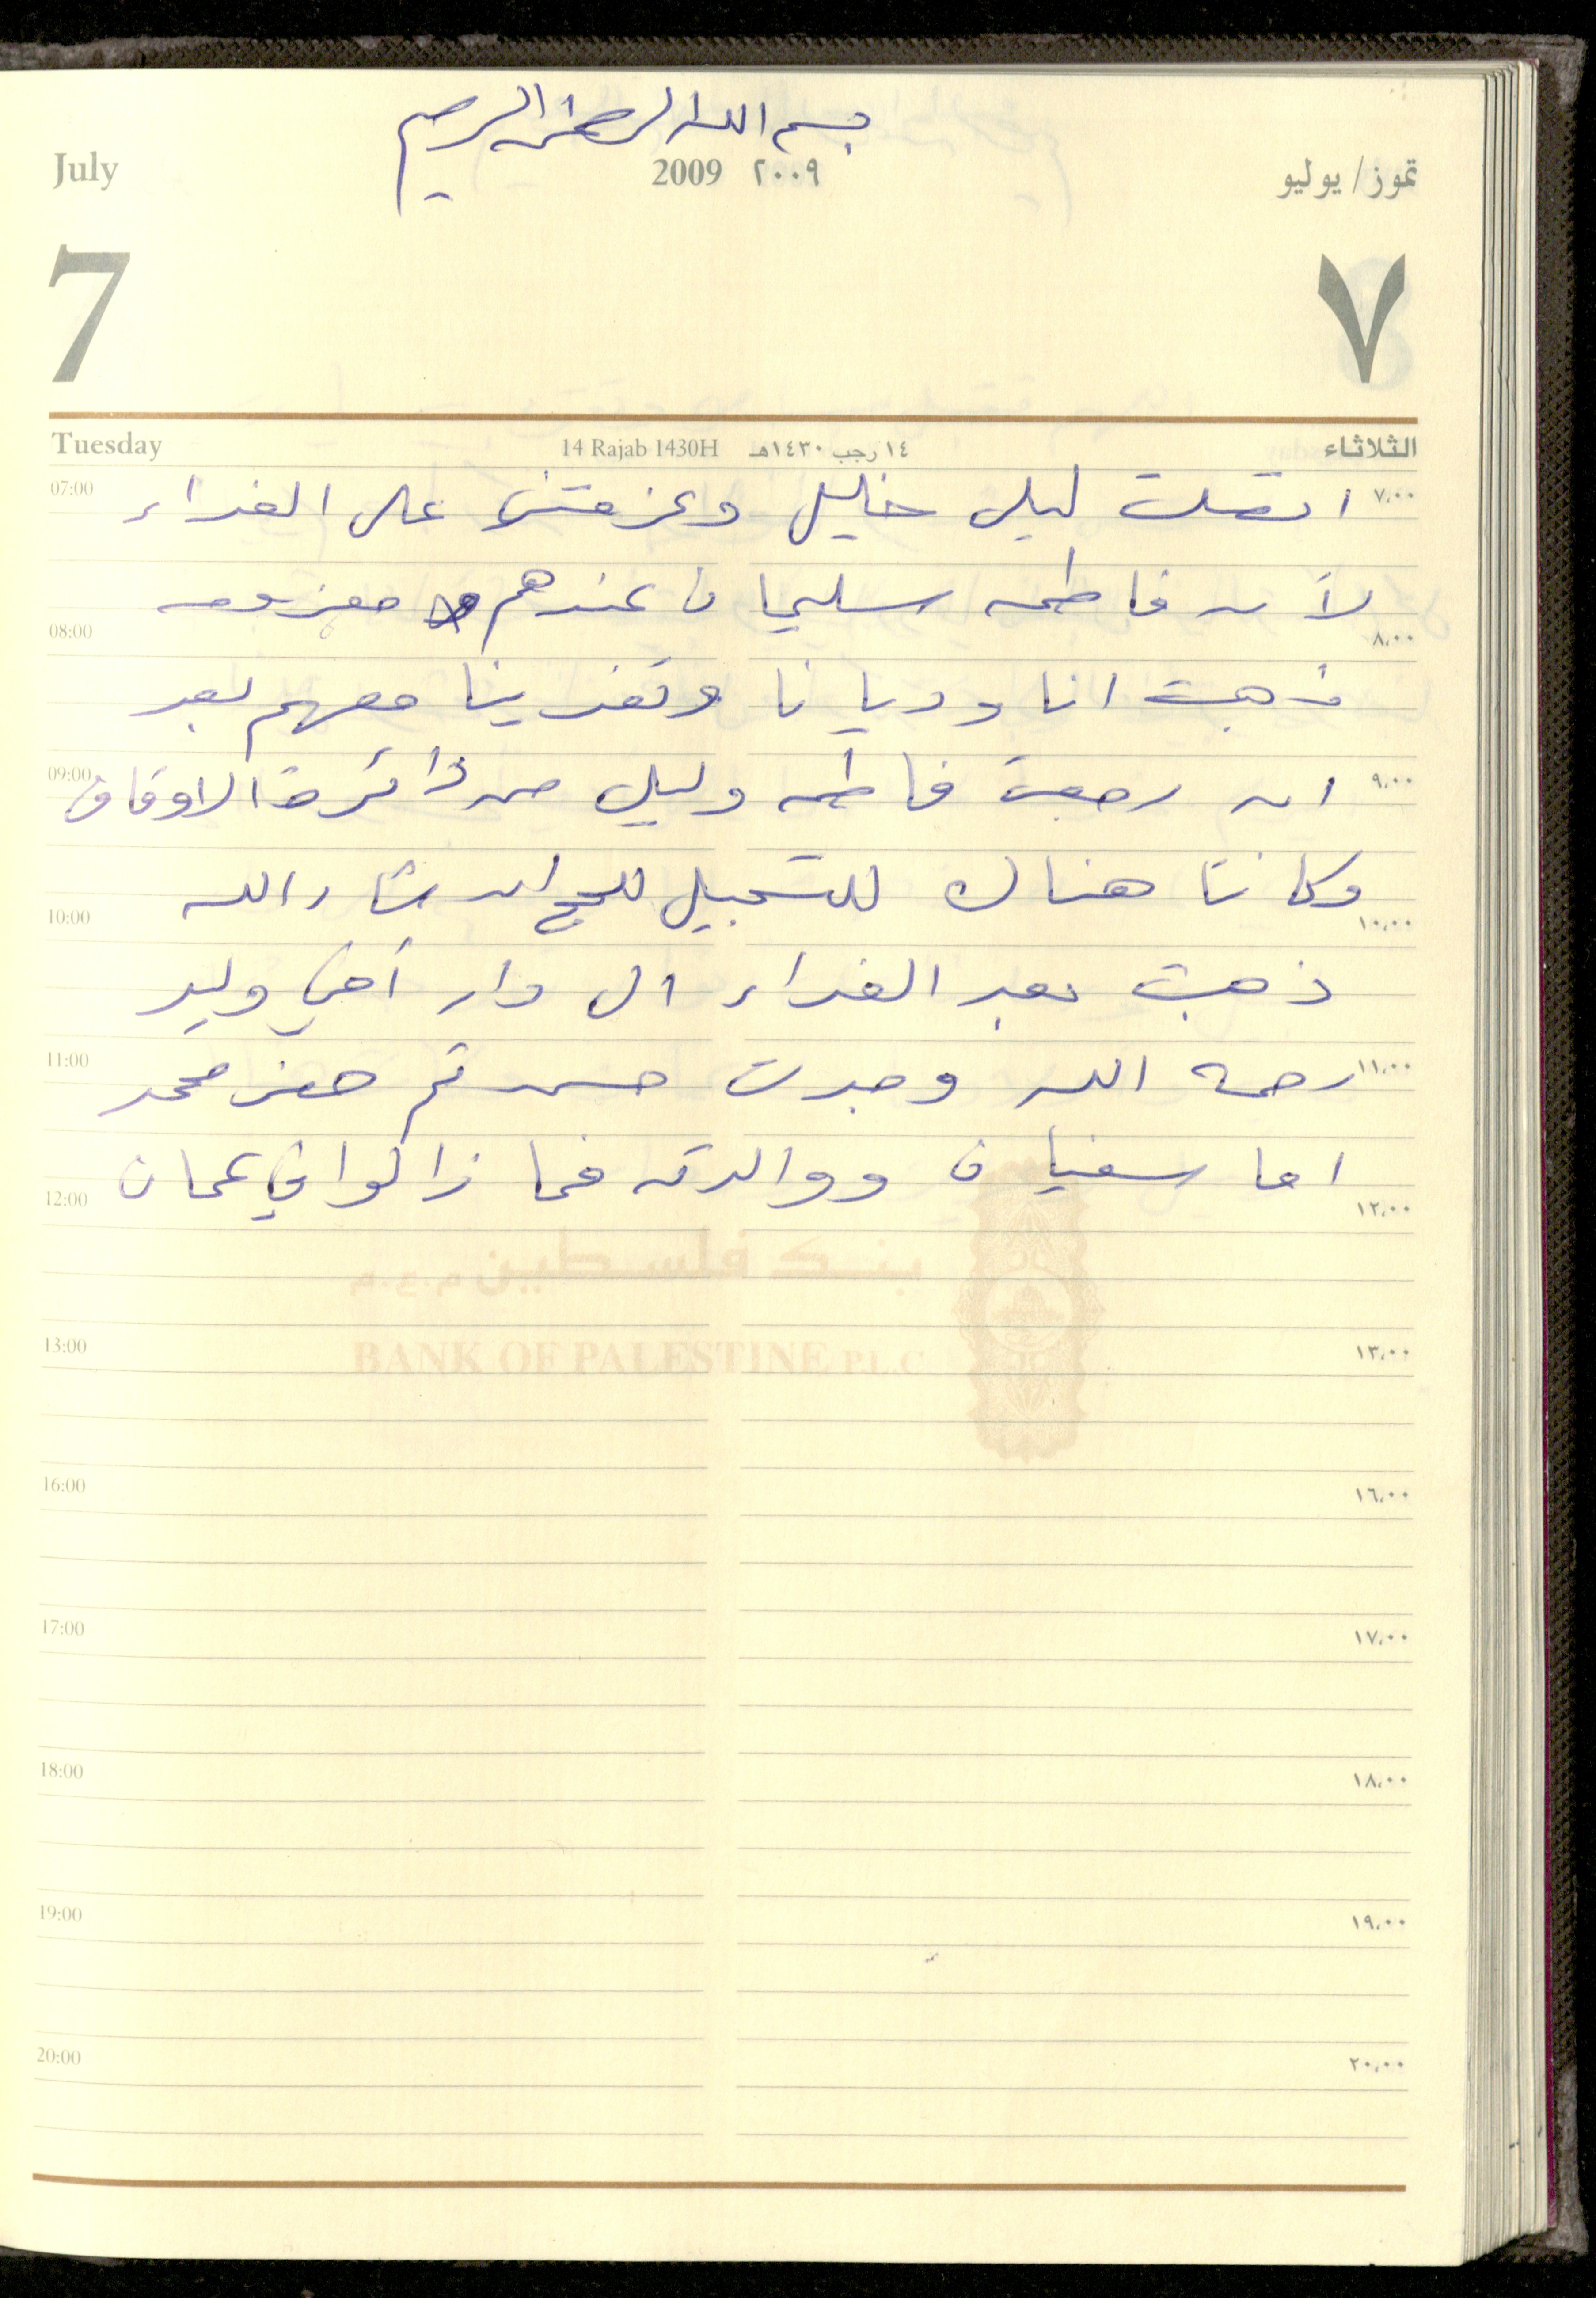 بسم الله الرحمن الرحيم
July 2009 ٢٠٠٩ تموز/يوليو
7 ٧
Tuesday 14 Rajab 1430H ١٤ رجب ١٤٣٠هـ الثلاثاء
07:00 اتصلت ليلى خليل وعزمتني على الغداء ٧,٠٠
لأن فاطمه سليمان عندهم معزومه
08:00 ٨,٠٠
ذهبت انا وديانا وتغدينا معهم بعد
09:00 ان رجعت فاطمه وليلى من دائرة الاوقاف ٩,٠٠
وكانتا هناك للتسجيل للحج ان شاء الله
10:00 ١٠,٠٠
ذهبت بعد الغداء الى دار أخي وليد
11:00 رحمه الله وجدت حسن محمد ١١,٠٠
اما سفيان ووالدته فما زالوا في عمان
12:00 ١٢,٠٠
بنك فلسطين م.ع.م
BANK OF PALESTINE P.L.C
13:00 ١٣,٠٠
16:00 ١٦,٠٠
17:00 ١٧,٠٠
18:00 ١٨,٠٠
19:00 ١٩,٠٠
20:00 ٢٠,٠٠